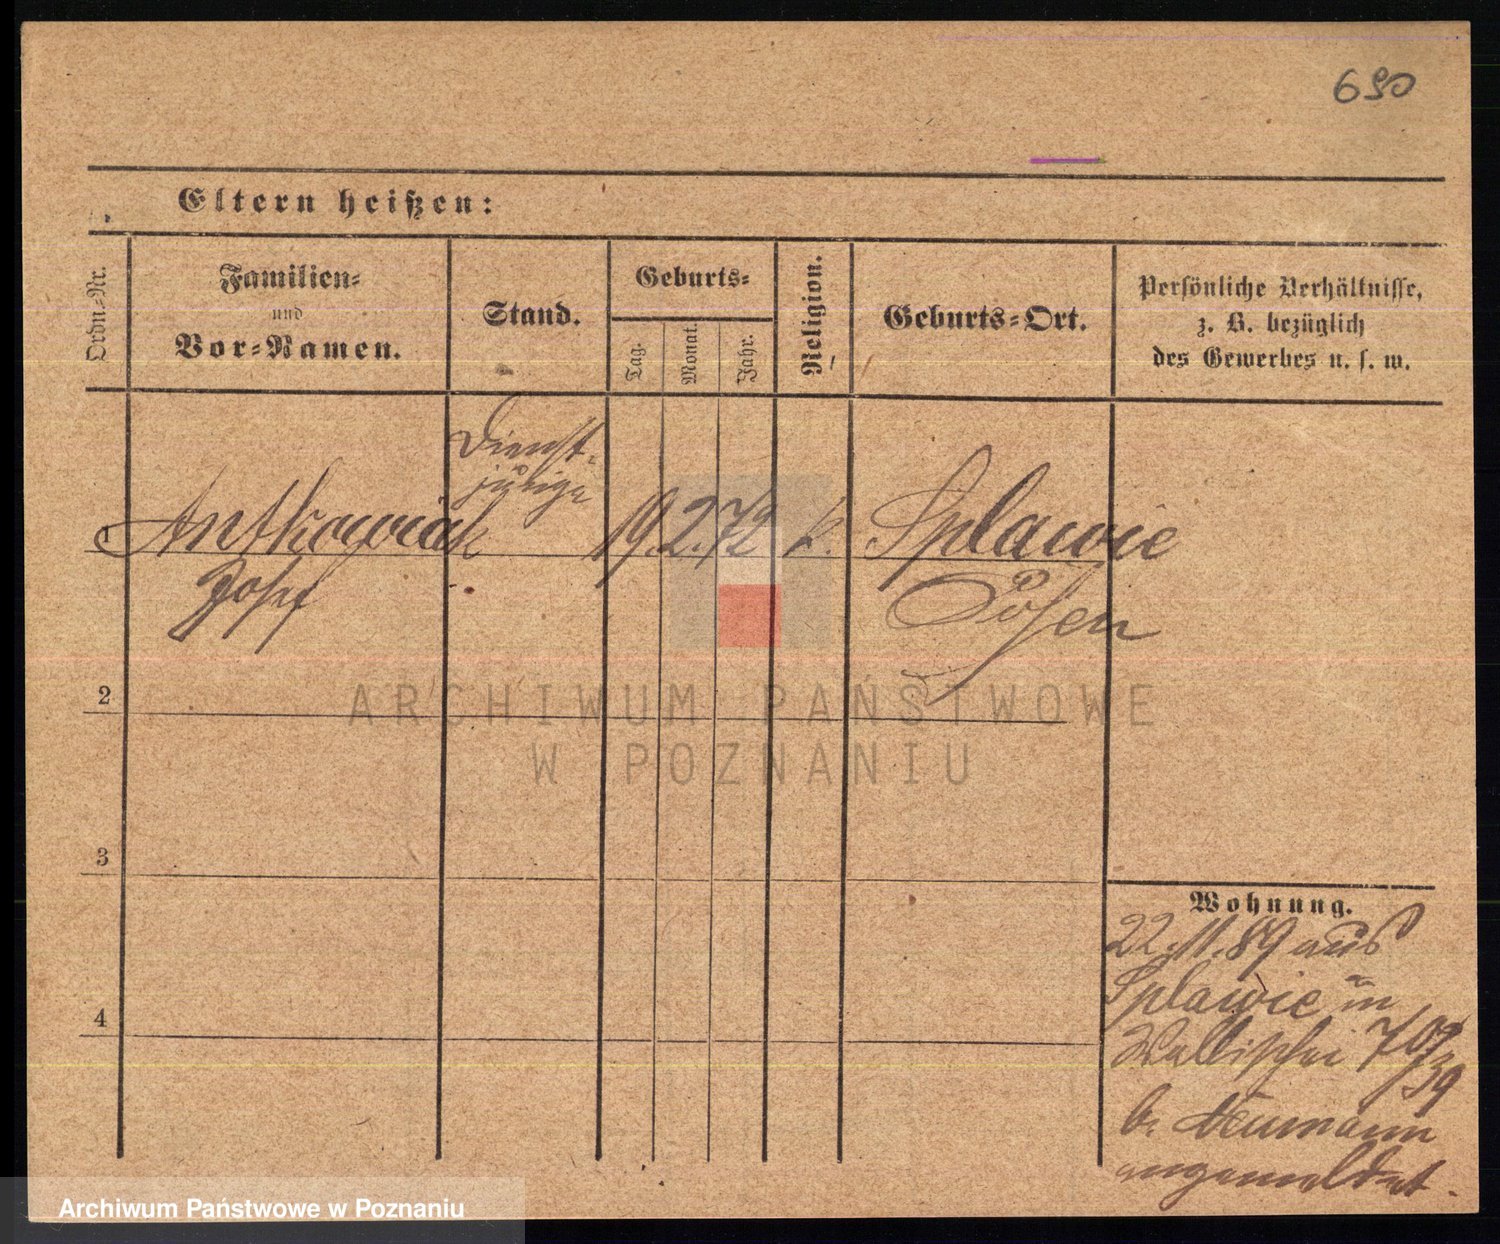 690
Eltern heißen:
Ordn.-Nr.
Familien-
und
Vor-Namen.
Stand.
Geburts-
Tag.
Monat.
Jahr.
Religion.
Geburts-Ort.
Persönliche Verhältnisse,
z. B. bezüglich
des Gewerbes u. s. w.
Dienst-
junge
1 Antkowiak 19. 2. 72 k. Splawie
Josef Posen
2
3
4
Wohnung.
22. 11. 89 aus
Splawie in
Wallischei 70/
39
b. Neumann
angemeldet.
ARCHIWUM PAŃSTWOWE
W POZNANIU
Archiwum Państwowe w Poznaniu